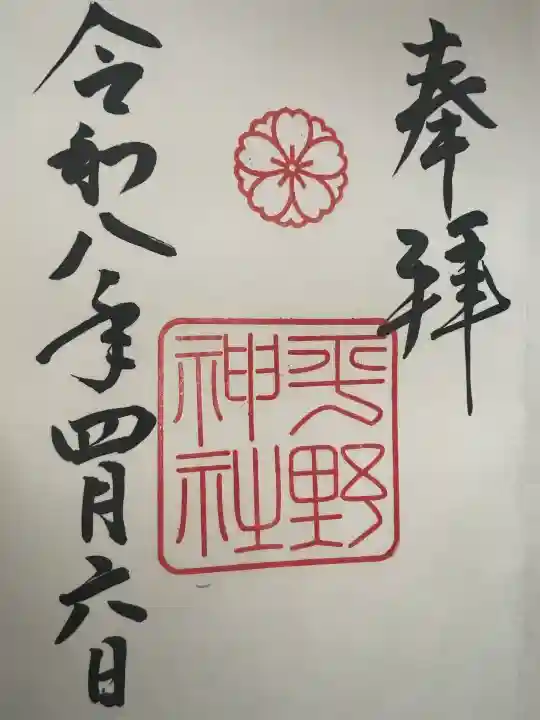 奉拝
平野
神社
令和八年四月六日